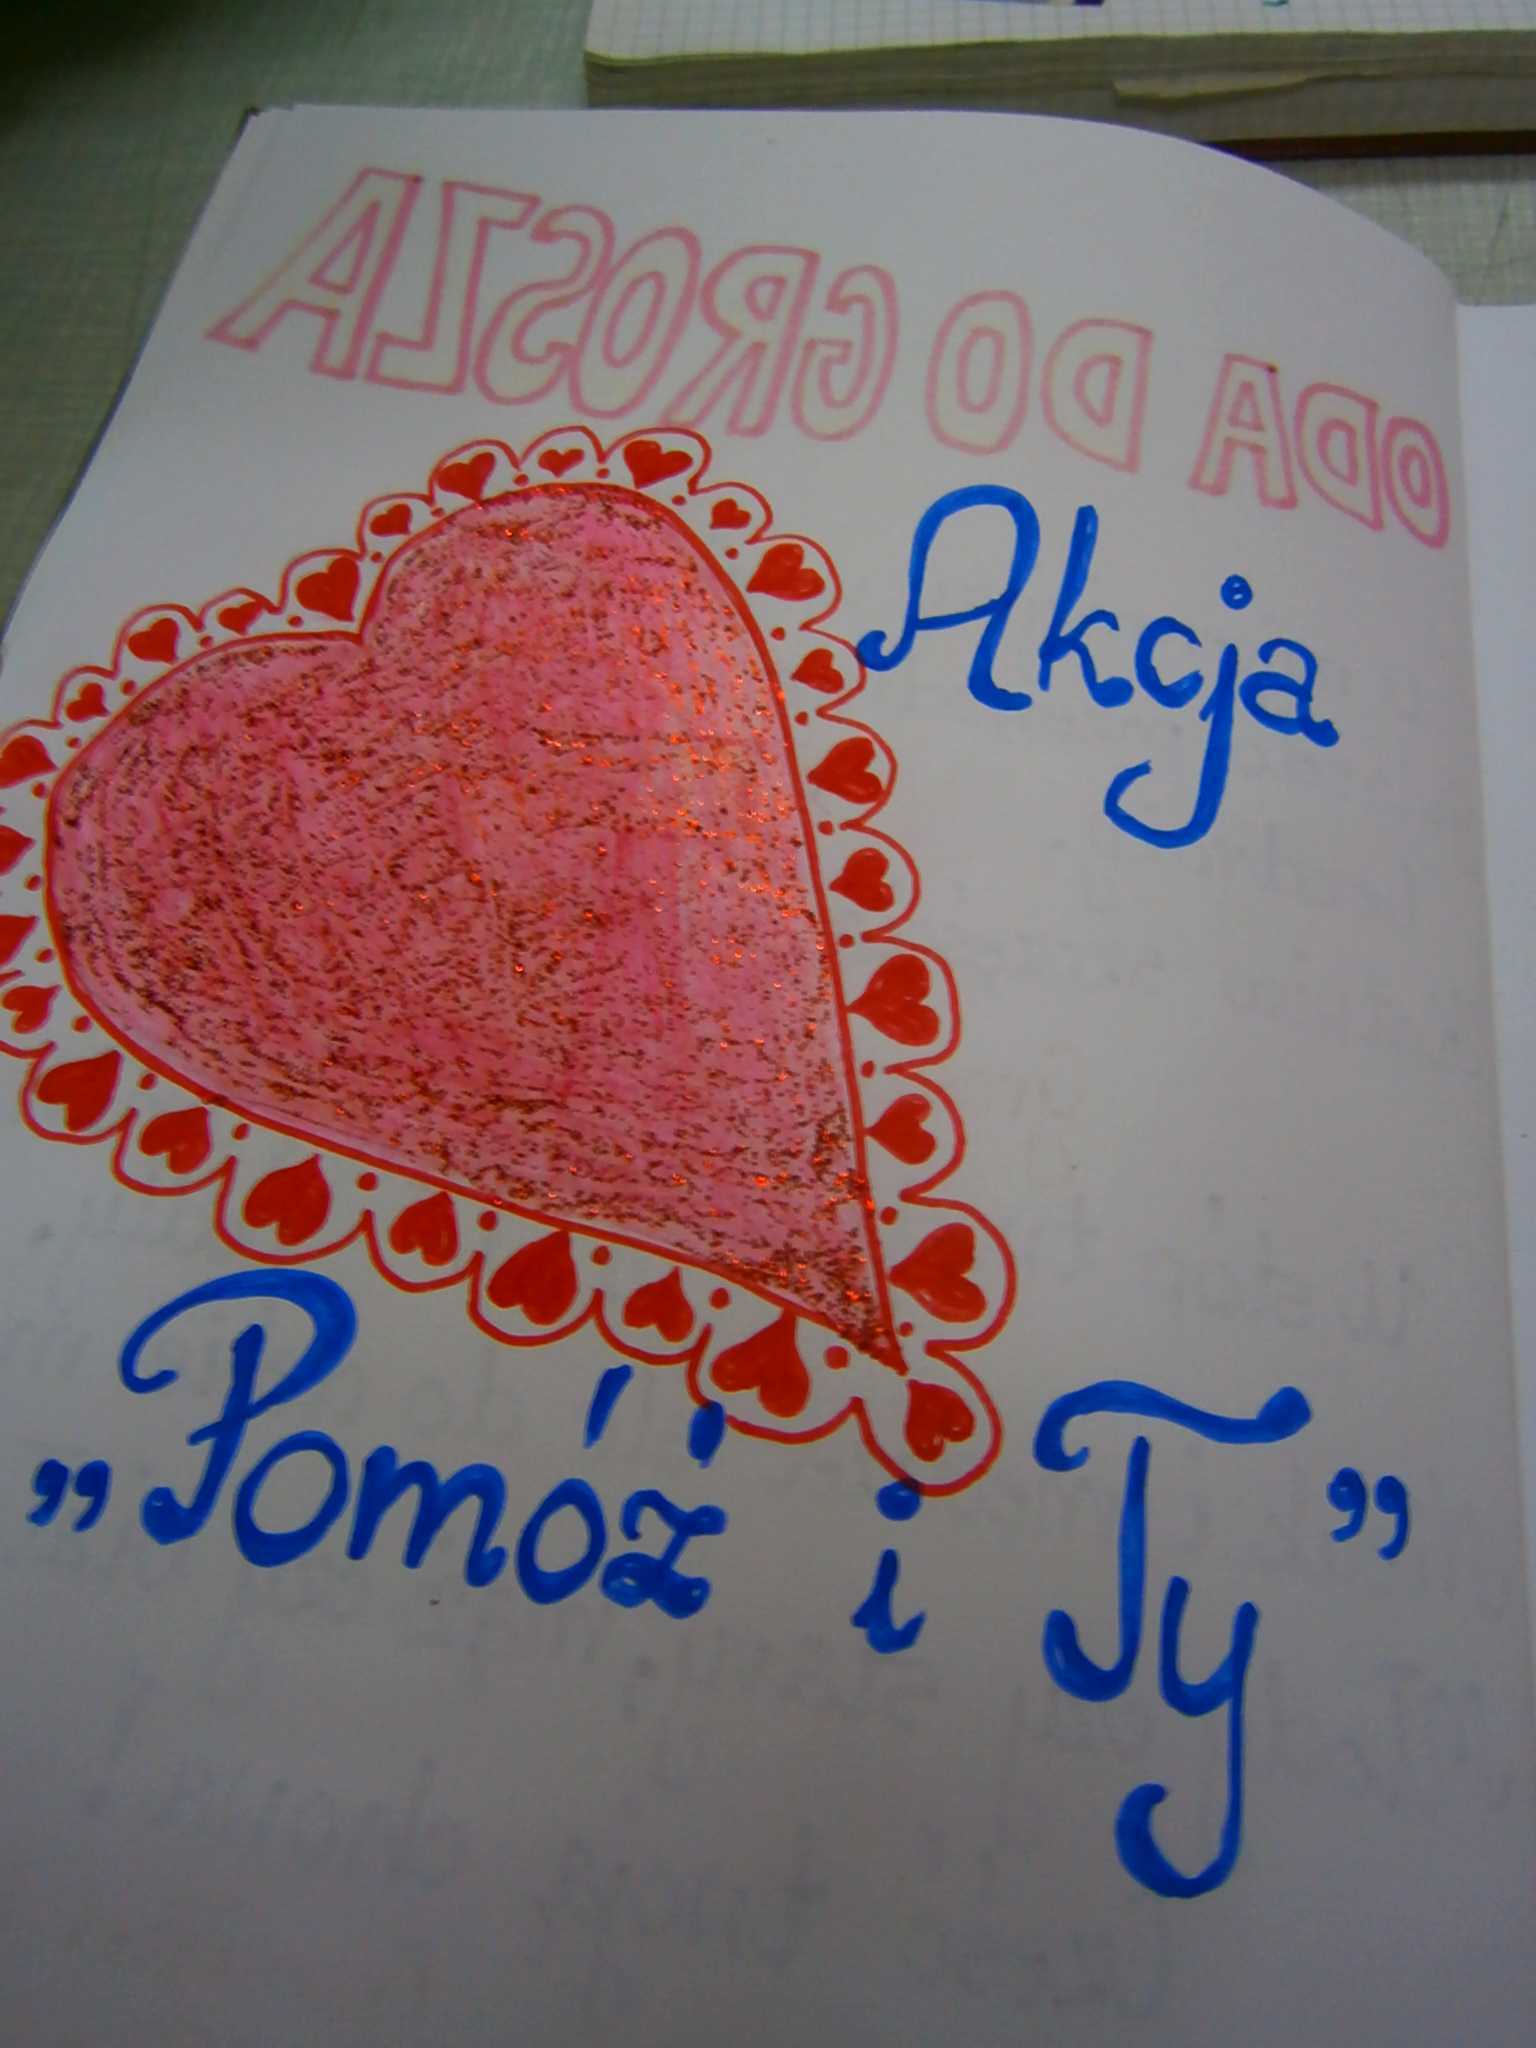 ODA DO GROSZA
Akcja
„Pomóż i Ty”